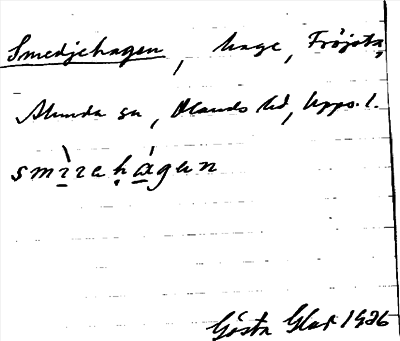 Smedjehagen, hage, Fröjsta,
Alunda sn, Olands hd, Upps. l.
Gösta Glas 1926